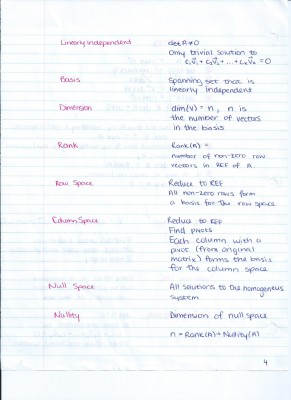 Linearly Independent
det A ≠ 0
Only trivial solution to
c₁v₁ + c₂v₂ + ... + cₖvₖ = 0
Basis
Spanning set that is
linearly independent
Dimension
dim(V) = n, n is
the number of vectors
in the basis
Rank
Rank(A) =
number of non-zero row
vectors in REF of A.
Row Space
Reduce to REF
All non-zero rows form
a basis for the row space
Column Space
Reduce to REF
Find pivots
Each column with a
pivot (from original
matrix) forms the basis
for the column space
Null Space
All solutions to the homogeneus
system
Nullity
Dimension of null space
n = Rank(A) + Nullity(A)
4